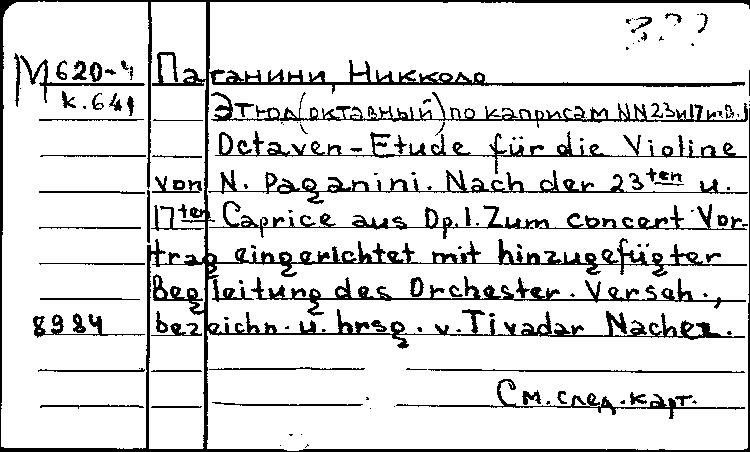 3??
М 620-4 Паганини, Никколо
к.641 Этюд (октавный) по каприсам NN 23 и 17 и.В.1
Octaven-Etude für die Violine
von N. Paganini. Nach der 23ten u.
17ten Caprice aus Op.1. Zum concert Vor-
trag eingerichtet mit hinzugefügter
Begleitung des Orchester. Verseh.,
8984 bezeichn. u. hrsg. v. Tivadar Nachez.
См. след. карт.